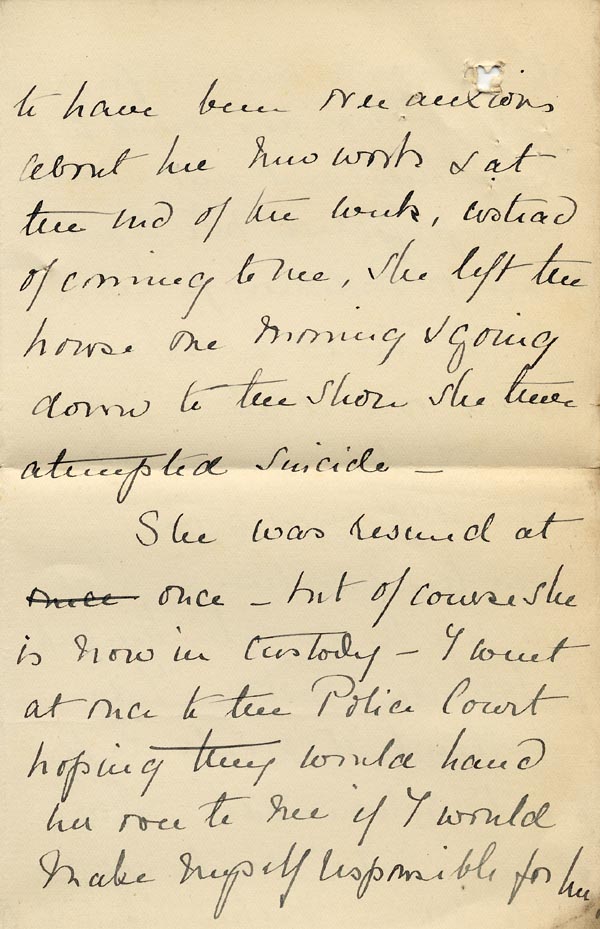 to have been over anxious
about her new work & at
the end of the week, instead
of coming to me, she left the
house one morning & going
down to the shore she there
attempted suicide –
She was rescued at
once once – but of course she
is now in custody – I went
at once to the Police Court
hoping they would hand
her over to me if I would
make myself responsible for her